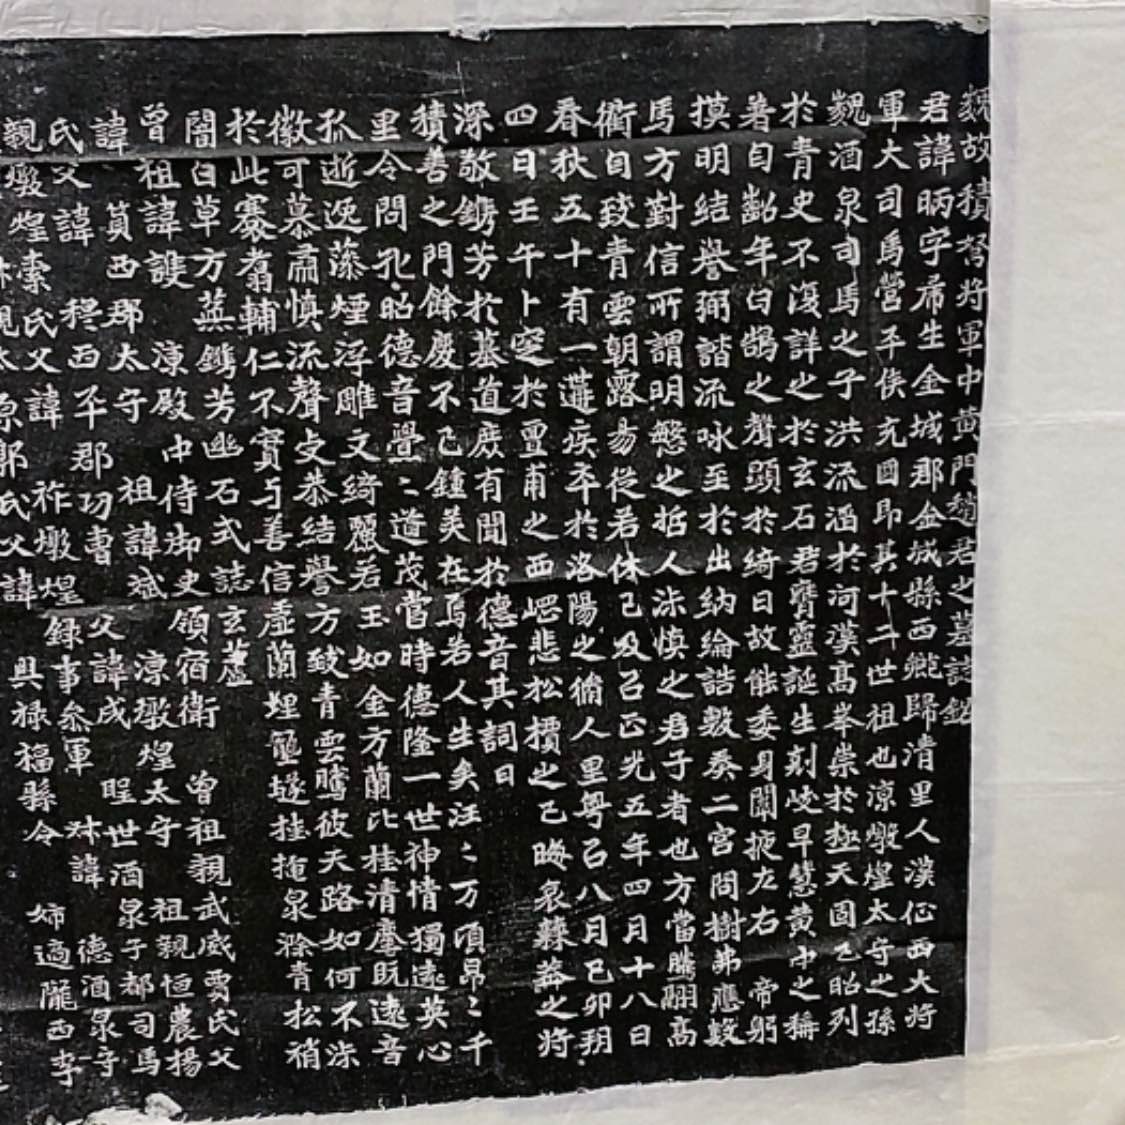 魏故積弩將軍中黃門趙君之墓誌銘
君諱昞字席生金城郡金城縣西鄉歸清里人漢征西大將
軍大司馬營平侯充國即其十二世祖也涼燉煌太守之孫
魏酒泉司馬之子洪流涵於河漢高峯崇於極天固已昭列
於青史不復詳之於玄石君膺靈誕生刻岐早慧黃中之稱
著自齠年白鵠之聲顯於綺日故能委身闈掖左右帝躬
摸明結譽弼諧流咏至於出納綸誥敷奏二宮問樹弗應數
馬方對信所謂明慜之哲人沫慎之君子者也方當騰翮高
衢自致青雲朝露易從若休已及以正光五年四月十八日
春秋五十有一遘疾卒於洛陽之脩人里粵以八月己卯朔
四日壬午卜窆於亶甫之西崐悲松檟之已晦哀蘇莽之將
深敬鐫芳於墓道庶有聞於德音其詞曰
積善之門餘慶不已鍾美在焉若人生矣汪〻万頃昂〻千
里令問孔昭德音舋〻道茂當時德隆一世神情獨遠英心
孤逝逸藻煙浮雕文綺麗若玉如金方蘭比桂清塵既遠音
徽可慕肅慎流聲支恭結譽方致青雲騰彼天路如何不沫
於此賽翥輔仁不實与善信虛蘭埋壟隧桂掩泉滁青松稍
闇白草方蕪鐫芳幽石式誌玄廬
曾祖諱護涼殿中侍御史領宿衛曾祖親武威賈氏父
諱質西郡太守祖諱斌涼燉煌太守祖親恒農楊
氏父諱穆西平郡功曹父諱戌聖世酒泉子都司馬
親燉煌索氏父諱祚燉煌錄事參軍妹諱德酒泉守
親太原郭氏父諱具祿福縣令姉適隴西李